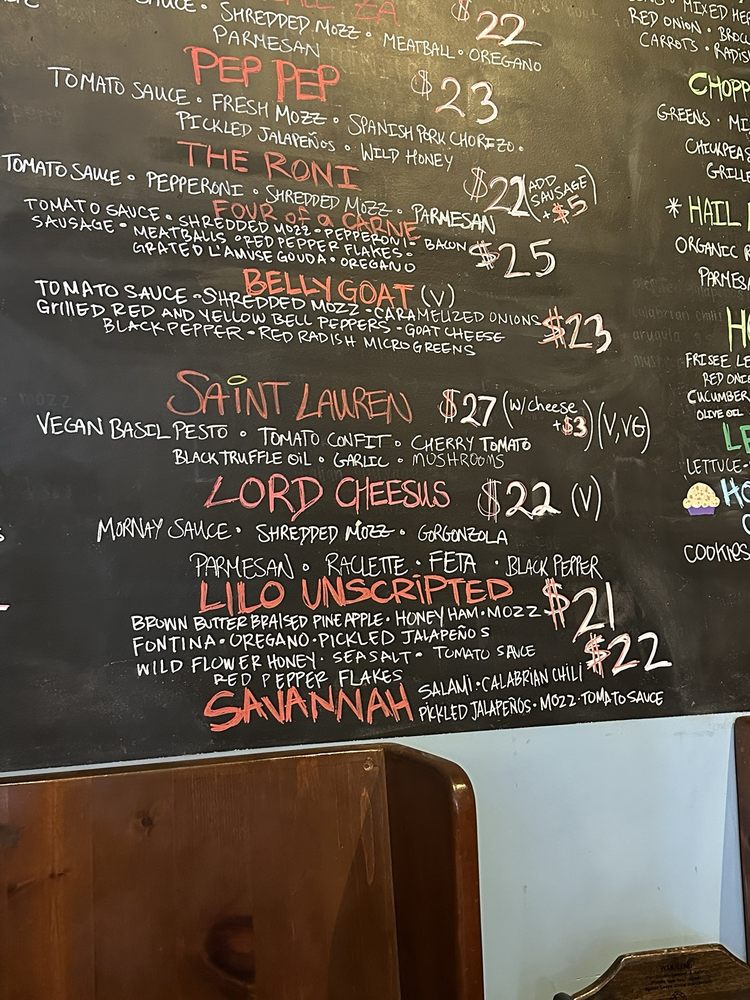 SAUCE • SHREDDED MOZZ • MEATBALL • OREGANO
ZA $22
PARMESAN
PEP PEP $23
TOMATO SAUCE • FRESH MOZZ • SPANISH PORK CHORIZO •
PICKLED JALAPEÑOS • WILD HONEY
THE RONI $22 (ADD SAUSAGE +$5)
TOMATO SAUCE • PEPPERONI • SHREDDED MOZZ • PARMESAN
FOUR of a CARNE $25
TOMATO SAUCE • SHREDDED MOZZ • PEPPERONI • BACON
SAUSAGE • MEATBALLS • RED PEPPER FLAKES •
GRATED L'AMUSE GOUDA • OREGANO
BELLY GOAT (V) $23
TOMATO SAUCE • SHREDDED MOZZ • CARAMELIZED ONIONS
GRILLED RED AND YELLOW BELL PEPPERS • GOAT CHEESE
BLACK PEPPER • RED RADISH MICROGREENS
SAINT LAUREN $27 (W/cheese +$3) (V, VG)
VEGAN BASIL PESTO • TOMATO CONFIT • CHERRY TOMATO
BLACK TRUFFLE OIL • GARLIC • MUSHROOMS
LORD CHEESUS $22 (V)
MORNAY SAUCE • SHREDDED MOZZ • GORGONZOLA
PARMESAN • RACLETTE • FETA • BLACK PEPPER
LILO UNSCRIPTED $21
BROWN BUTTER BRAISED PINEAPPLE • HONEY HAM • MOZZ
FONTINA • OREGANO • PICKLED JALAPEÑOS
WILD FLOWER HONEY • SEA SALT • TOMATO SAUCE
RED PEPPER FLAKES
SAVANNAH $22
SALAMI • CALABRIAN CHILI
PICKLED JALAPEÑOS • MOZZ • TOMATO SAUCE
MIXED HER
RED ONION • BROC
CARROTS • RADIS
CHOPP
GREENS • MI
CHICKPEAS
GRILLE
* HAIL
ORGANIC R
PARMES
HO
FRISEE LE
RED ONIO
CUCUMBER
OLIVE OIL
LE
LETTUCE
HO
COOKIES